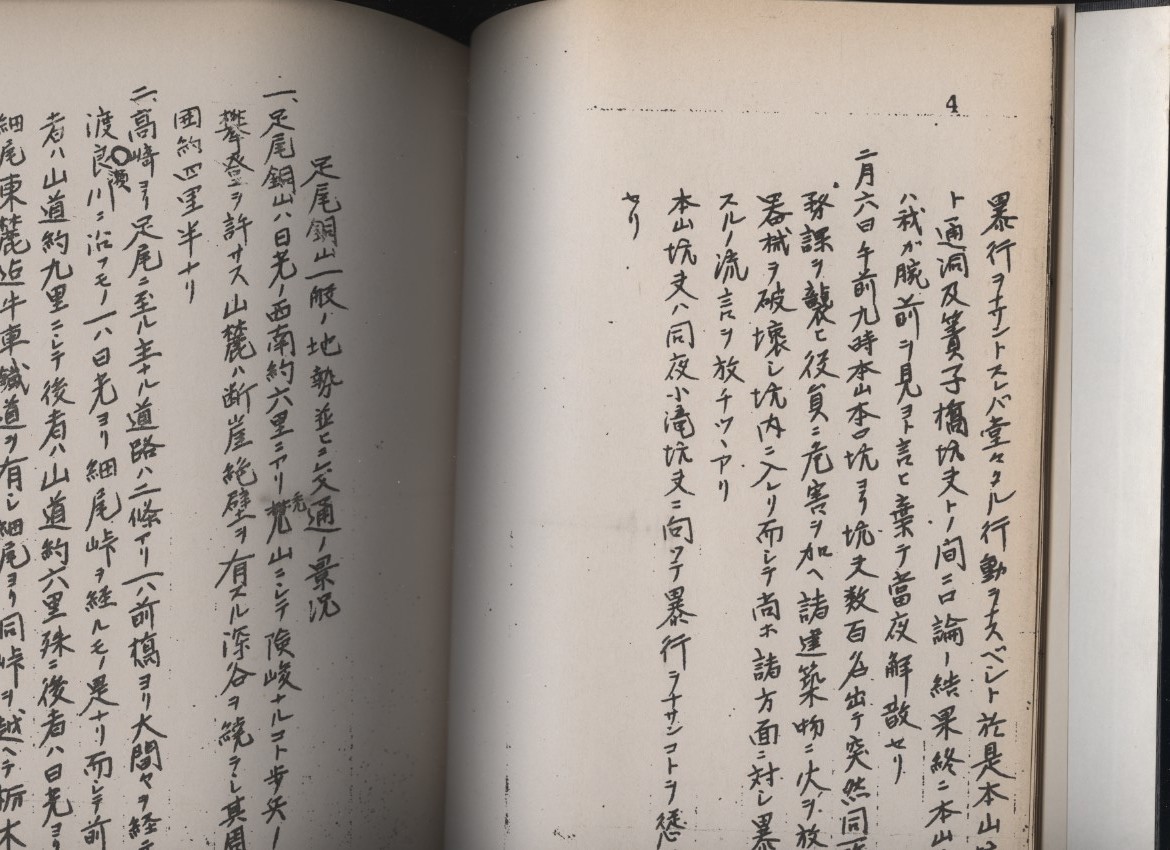 4
暴行ヲナサントスレバ堂々タル行動ヲナスベシト於是本山
ト通洞及簀子橋坑夫トノ間ニ口論ノ結果終ニ本山
ハ我ガ腕前ヲ見ヨト言ヒ棄テ當夜解散セリ
二月六日午前九時本山本口坑ヨリ坑夫数百名出テ突然同
務課ヲ襲ヒ役員ニ危害ヲ加ヘ諸建築物ニ火ヲ放
器械ヲ破壊シ坑内ニ入レリ而シテ尚ホ諸方面ニ対シ暴
スルノ流言ヲ放チツヽアリ
本山坑夫ハ同夜小滝坑夫ニ向ツテ暴行ヲナサンコトヲ慫
セリ
足尾銅山一般ノ地勢並ヒニ交通ノ景況
一、足尾銅山ハ日光ノ西南約六里ニアリ禿山ニシテ険峻ナルコト歩兵ノ
攀登ヲ許サス山麓ハ断崖絶壁ヲ有スル深谷ヲ繞ラシ其周
囲約四里半ナリ
二、高崎ヨリ足尾ニ至ル主ナル道路ハ二條アリ一ハ前橋ヨリ大間々ヲ経テ
渡良瀬川ニ沿フモノ一ハ日光ヨリ細尾峠ヲ経ルモノ是ナリ而シテ前
者ハ山道約九里ニシテ後者ハ山道約六里殊ニ後者ハ日光ヨリ
細尾東麓迄牛車鐵道ヲ有シ細尾ヨリ同峠ヲ越ヘテ栃木